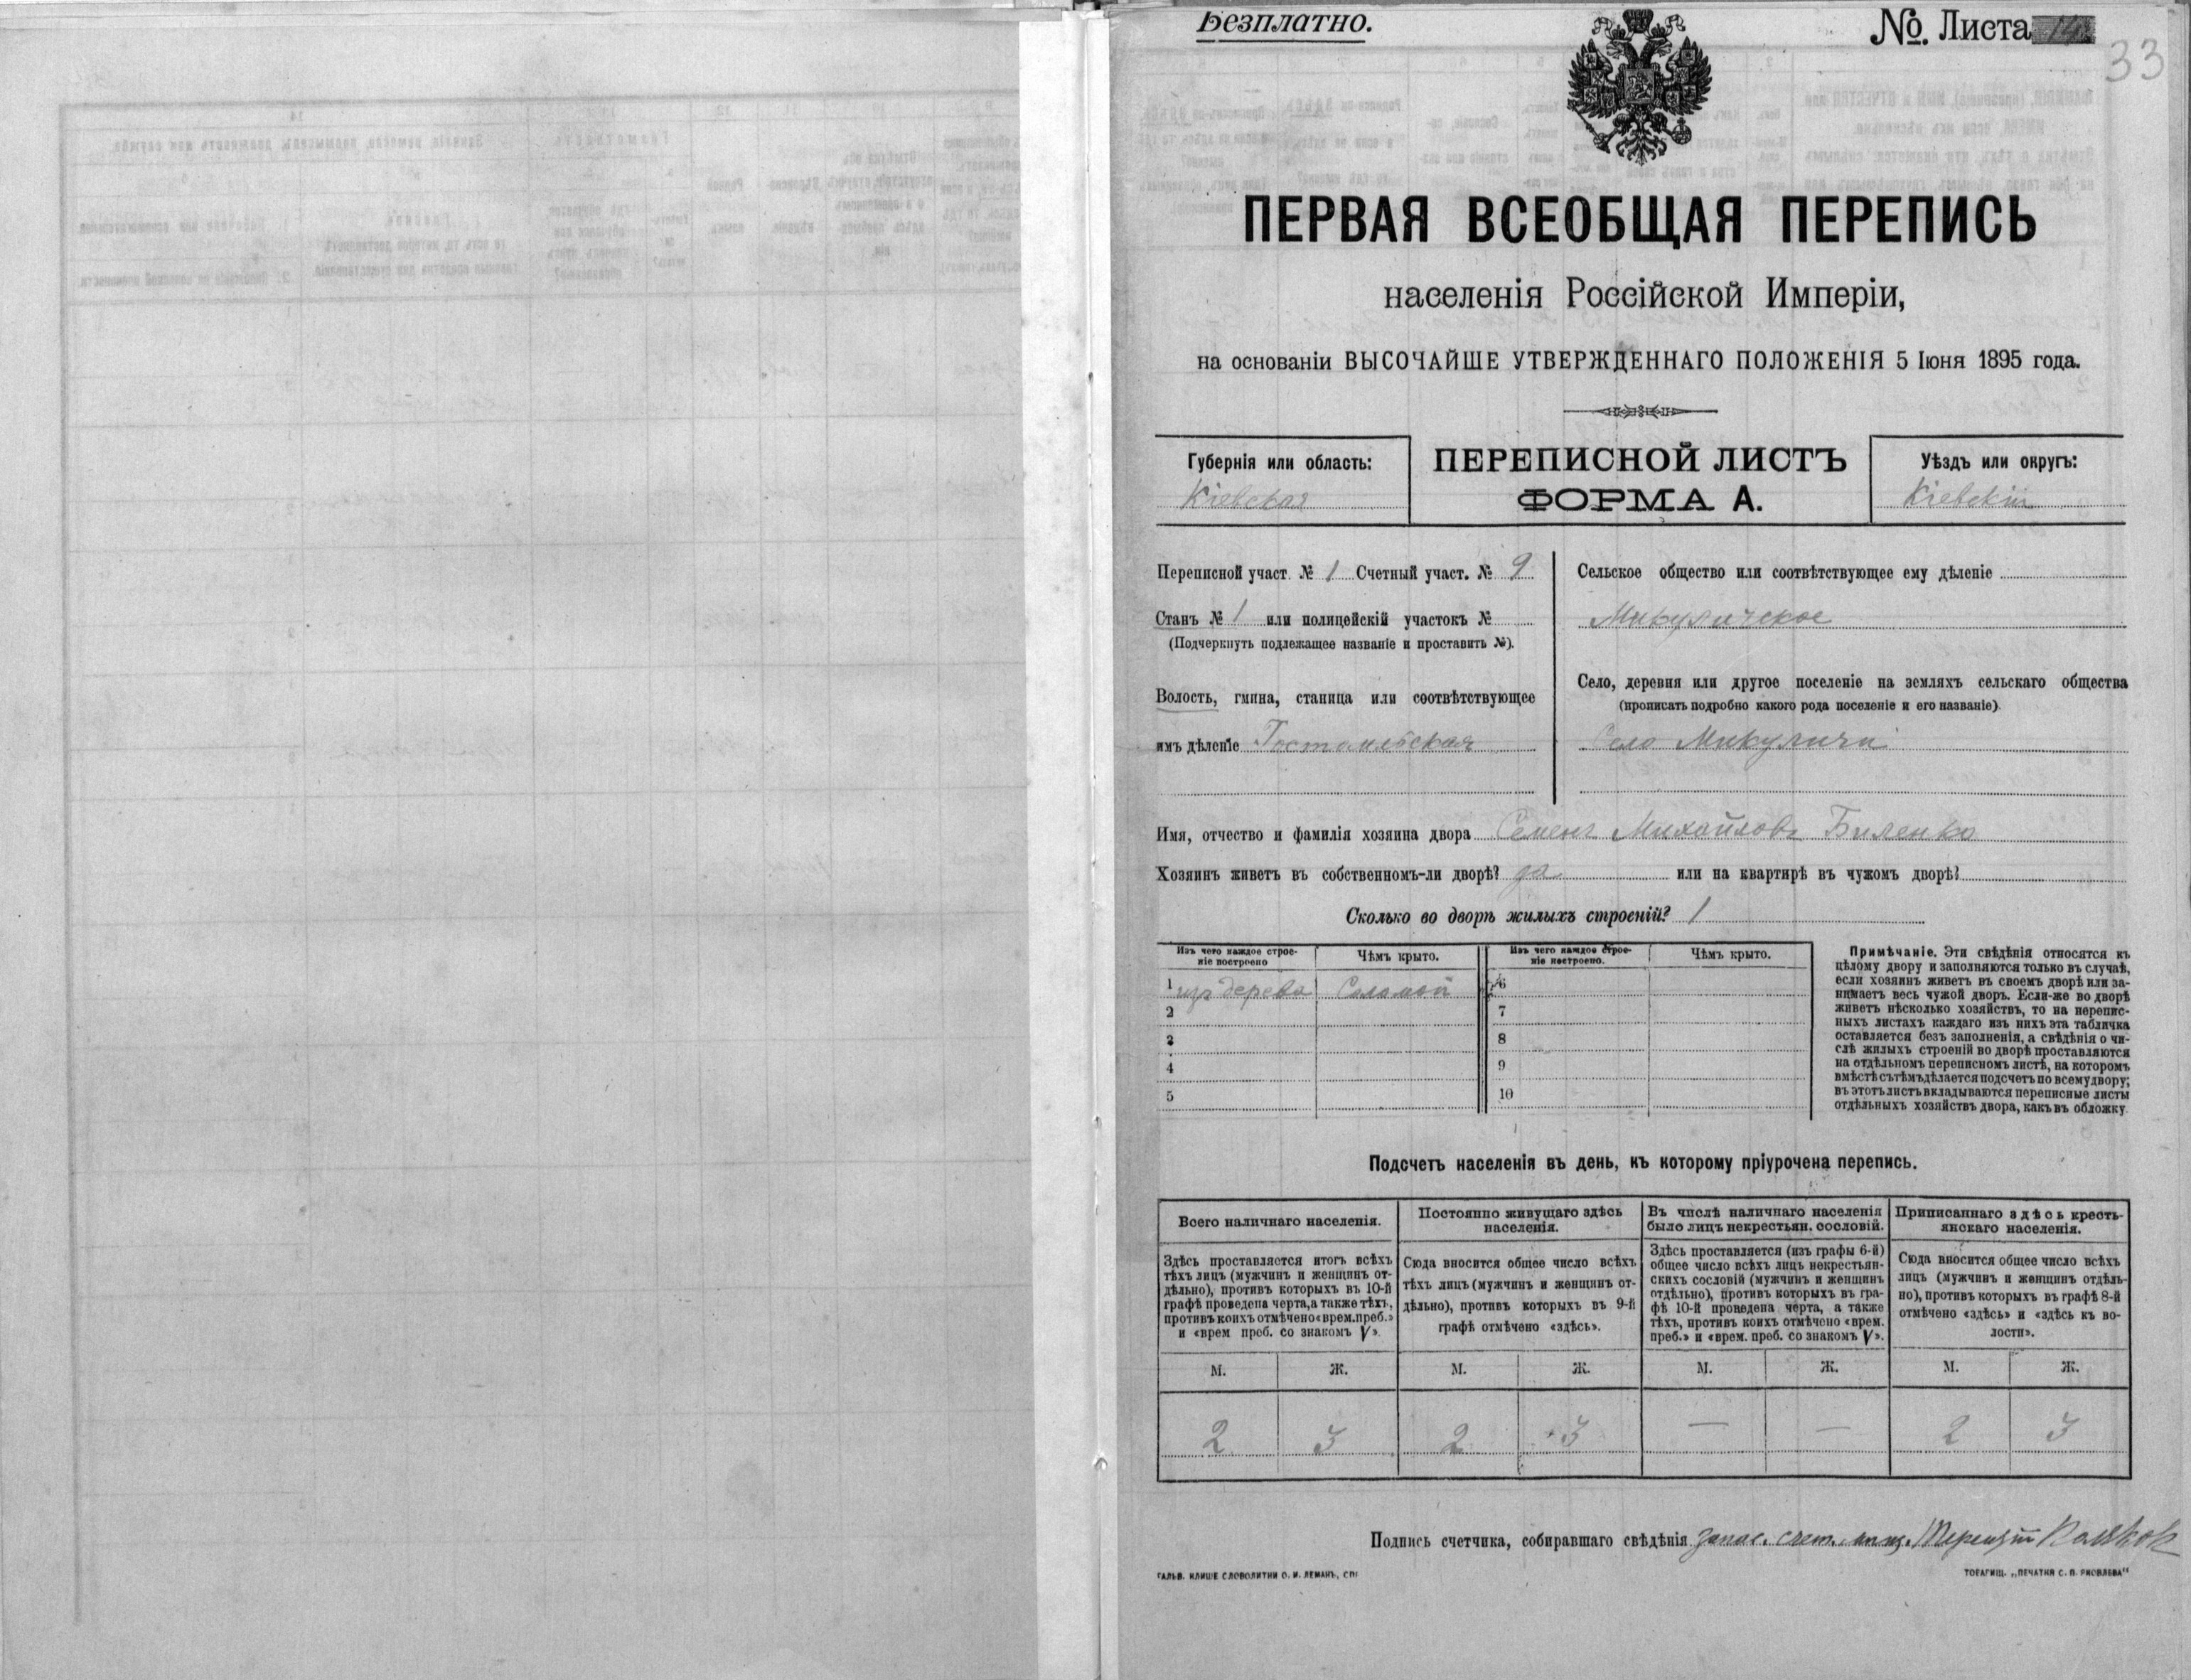 Безплатно.
№ Листа 14
33
ПЕРВАЯ ВСЕОБЩАЯ ПЕРЕПИСЬ
населенія Россійской Имперіи,
на основаніи ВЫСОЧАЙШЕ УТВЕРЖДЕННАГО ПОЛОЖЕНІЯ 5 Іюня 1895 года.
Губернія или область:
Кіевская
ПЕРЕПИСНОЙ ЛИСТЪ
ФОРМА А.
Уѣздъ или округъ:
Кіевскій
Переписной участ. № 1 Счетный участ. № 9
Станъ № 1 или полицейскій участокъ №
(Подчеркнуть подлежащее названіе и проставить №).
Волость, гмина, станица или соотвѣтствующее
имъ дѣленіе Гостомльская
Сельское общество или соотвѣтствующее ему дѣленіе
Микуличское
Село, деревня или другое поселеніе на земляхъ сельскаго общества
(прописать подробно какого рода поселеніе и его названіе).
Село Микуличи
Имя, отчество и фамилія хозяина двора Семенъ Михайловъ Биленко
Хозяинъ живетъ въ собственномъ-ли дворѣ? да или на квартирѣ въ чужомъ дворѣ?
Сколько во дворѣ жилыхъ строеній? 1
Изъ чего каждое строе-
ніе построено
Чѣмъ крыто.
Изъ чего каждое строе-
ніе построено.
Чѣмъ крыто.
1 изъ дерева Соломой 6
2 7
3 8
4 9
5 10
Примѣчаніе. Эти свѣдѣнія относятся къ
цѣлому двору и заполняются только въ случаѣ,
если хозяинъ живетъ въ своемъ дворѣ или за-
нимаетъ весь чужой дворъ. Если-же во дворѣ
живетъ нѣсколько хозяйствъ, то на перепис-
ныхъ листахъ каждаго изъ нихъ эта табличка
оставляется безъ заполненія, а свѣдѣнія о чи-
слѣ жилыхъ строеній во дворѣ проставляются
на отдѣльномъ переписномъ листѣ, на которомъ
вмѣстѣ съ тѣмъ дѣлается подсчетъ по всему двору;
въ этотъ листъ вкладываются переписные листы
отдѣльныхъ хозяйствъ двора, какъ въ обложку.
Подсчетъ населенія въ день, къ которому пріурочена перепись.
Всего наличнаго населенія.
Здѣсь проставляется итогъ всѣхъ
тѣхъ лицъ (мужчинъ и женщинъ от-
дѣльно), противъ которыхъ въ 10-й
графѣ проведена черта, а также тѣхъ,
противъ коихъ отмѣчено «врем. преб.»
и «врем преб. со знакомъ V».
Постоянно живущаго здѣсь
населенія.
Сюда вносится общее число всѣхъ
тѣхъ лицъ (мужчинъ и женщинъ от-
дѣльно), противъ которыхъ въ 9-й
графѣ отмѣчено «здѣсь».
Въ числѣ наличнаго населенія
было лицъ некрестьян. сословій.
Здѣсь проставляется (изъ графы 6-й)
общее число всѣхъ лицъ некрестьян-
скихъ сословій (мужчинъ и женщинъ
отдѣльно), противъ которыхъ въ гра-
фѣ 10-й проведена черта, а также
тѣхъ, противъ коихъ отмѣчено «врем.
преб.» и «врем. преб. со знакомъ V».
Приписаннаго здѣсь кресть-
янскаго населенія.
Сюда вносится общее число всѣхъ
лицъ (мужчинъ и женщинъ отдѣль-
но), противъ которыхъ въ графѣ 8-й
отмѣчено «здѣсь» и «здѣсь къ во-
лости».
М. Ж. М. Ж. М. Ж. М. Ж.
2 3 2 3 — — 2 3
Подпись счетчика, собиравшаго свѣдѣнія запас. счет. Терентій
ГАЛЬВ. КЛИШЕ СЛОВОЛИТНИ О. И. ЛЕМАНЪ, СПБ
ТОВАРИЩ. „ПЕЧАТНЯ С. П. ЯКОВЛЕВА"